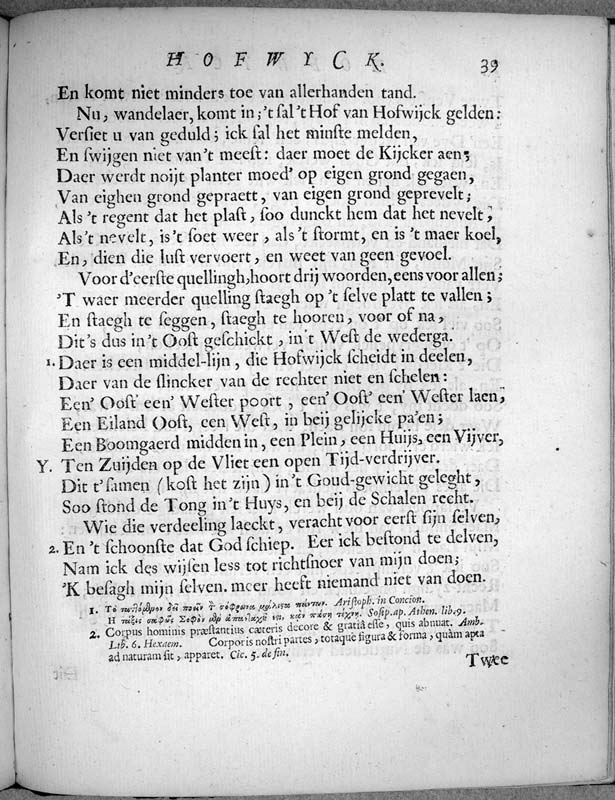 HOFWYCK. 39
En komt niet minders toe van allerhanden tand.
Nu, wandelaer, komt in; 't sal 't Hof van Hofwijck gelden:
Versiet u van geduld; ick sal het minste melden,
En swijgen niet van 't meest: daer moet de Kijcker aen;
Daer werdt noijt planter moed' op eigen grond gegaen,
Van eighen grond gepraett, van eigen grond geprevelt;
Als 't regent dat het plast, soo dunckt hem dat het nevelt,
Als 't nevelt, is 't soet weer, als 't stormt, en is 't maer koel,
En, dien die lust vervoert, en weet van geen gevoel.
Voor d'eerste quellingh, hoort drij woorden, eens voor allen;
'T waer meerder quelling staegh op 't selve platt te vallen;
En staegh te seggen, staegh te hooren, voor of na,
Dit's dus in 't Oost geschickt, in 't West de wederga.
1. Daer is een middel-lijn, die Hofwijck scheidt in deelen,
Daer van de slincker van de rechter niet en schelen:
Een' Oost' een' Wester poort, een' Oost' een' Wester laen,
Een Eiland Oost, een West, in beij gelijcke pa'en;
Een Boomgaerd midden in, een Plein, een Huijs, een Vijver,
Y. Ten Zuijden op de Vliet een open Tijd-verdrijver.
Dit t'samen (kost het zijn) in 't Goud-gewicht geleght,
Soo stond de Tong in 't Huys, en beij de Schalen recht.
Wie die verdeeling laeckt, veracht voor eerst sijn selven,
2. En 't schoonste dat God schiep. Eer ick bestond te delven,
Nam ick des wijsen less tot richtsnoer van mijn doen;
'K besagh mijn selven. meer heeft niemand niet van doen.
1. Aristoph. in Concion.
Sosip. ap. Athen. lib. 9.
2. Corpus hominis præstantius cæteris decore & gratiâ este, quis abnuat. Amb.
Lib. 6. Hexaem. Corporis nostri partes, totaque figura & forma, quàm apta
ad naturam sit, apparet. Cic. 5. de fin.
Twee